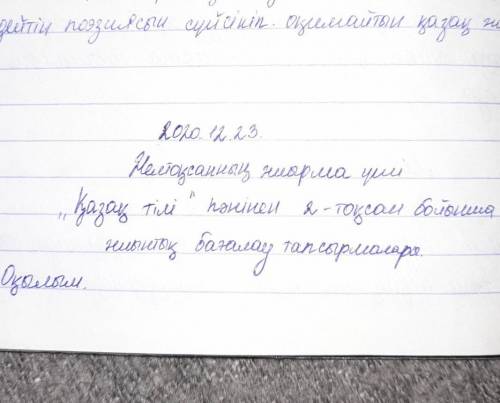 дейтін поэзиясын сүйсініп оқимайтын қазақ
2020.12.23.
Желтоқсанның жиырма үші
„Қазақ тілі" пәнінен 2-тоқсан бойынша
жиынтық бағалау тапсырмалары.
Оқылым.